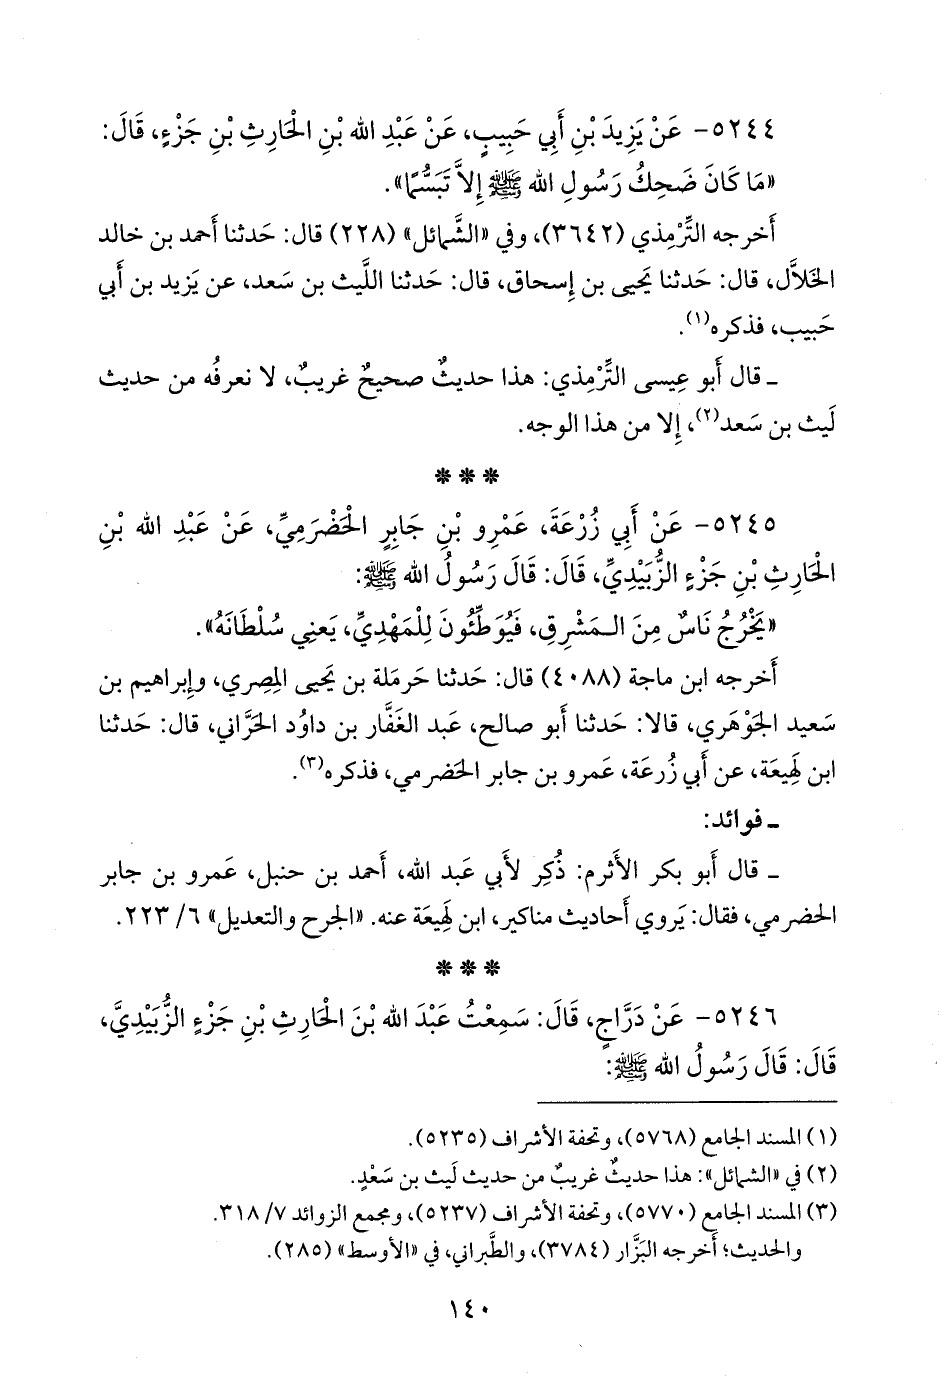 ٥٢٤٤- عَنْ يَزِيدَ بْنِ أَبِي حَبِيبٍ، عَنْ عَبْدِ الله بْنِ الحَارِثِ بْنِ جَزْءٍ، قَالَ:
«مَا كَانَ ضَحِكُ رَسُولِ الله ﷺ إِلاَّ تَبَسُّمًا».
أَخرجه التِّرْمِذي (٣٦٤٢)، وفي «الشَّمائل» (٢٢٨) قال: حَدثنا أَحمد بن خالد
الخَلاَّل، قال: حَدثنا يَحيى بن إِسحاق، قال: حَدثنا اللَّيث بن سَعد، عن يَزيد بن أَبي
حَبيب، فذكره(١).
ـ قال أَبو عِيسى التِّرْمِذي: هذا حديثٌ صحيحٌ غريبٌ، لا نعرفُه من حديث
لَيث بن سَعد(٢)، إِلا من هذا الوجه.
***
٥٢٤٥- عَنْ أَبِي زُرْعَةَ، عَمْرِو بْنِ جَابِرٍ الْحَضْرَمِيِّ، عَنْ عَبْدِ الله بْنِ
الْحَارِثِ بْنِ جَزْءٍ الزُّبَيْدِيِّ، قَالَ: قَالَ رَسُولُ الله ﷺ:
«يَخْرُجُ نَاسٌ مِنَ الـمَشْرِقِ، فَيُوَطِّئُونَ لِلْمَهْدِيِّ، يَعنِي سُلْطَانَهُ».
أَخرجه ابن ماجة (٤٠٨٨) قال: حَدثنا حَرمَلة بن يَحيى المِصري، وإِبراهيم بن
سَعيد الجَوْهَري، قالا: حَدثنا أَبو صالح، عَبد الغَفَّار بن داوُد الحَرَّاني، قال: حَدثنا
ابن لَهِيعَة، عن أَبي زُرعَة، عَمرو بن جابر الحَضرمي، فذكره(٣).
ـ فوائد:
ـ قال أَبو بكر الأَثرم: ذُكِر لأَبي عَبد الله، أَحمد بن حنبل، عَمرو بن جابر
الحضرمي، فقال: يَروي أَحاديث مناكير، ابن لَهِيعَة عنه. «الجرح والتعديل» ٦/ ٢٢٣.
***
٥٢٤٦- عَنْ دَرَّاجٍ، قَالَ: سَمِعْتُ عَبْدَ الله بْنَ الحَارِثِ بْنِ جَزْءٍ الزُّبَيْدِيَّ،
قَالَ: قَالَ رَسُولُ الله ﷺ:
(١) المسند الجامع (٥٧٦٨)، وتحفة الأشراف (٥٢٣٥).
(٢) في «الشمائل»: هذا حديثٌ غريبٌ من حديث لَيث بن سَعْدٍ.
(٣) المسند الجامع (٥٧٧٠)، وتحفة الأشراف (٥٢٣٧)، ومجمع الزوائد ٧/ ٣١٨.
والحديث؛ أَخرجه البَزَّار (٣٧٨٤)، والطَّبراني، في «الأوسط» (٢٨٥).
١٤٠